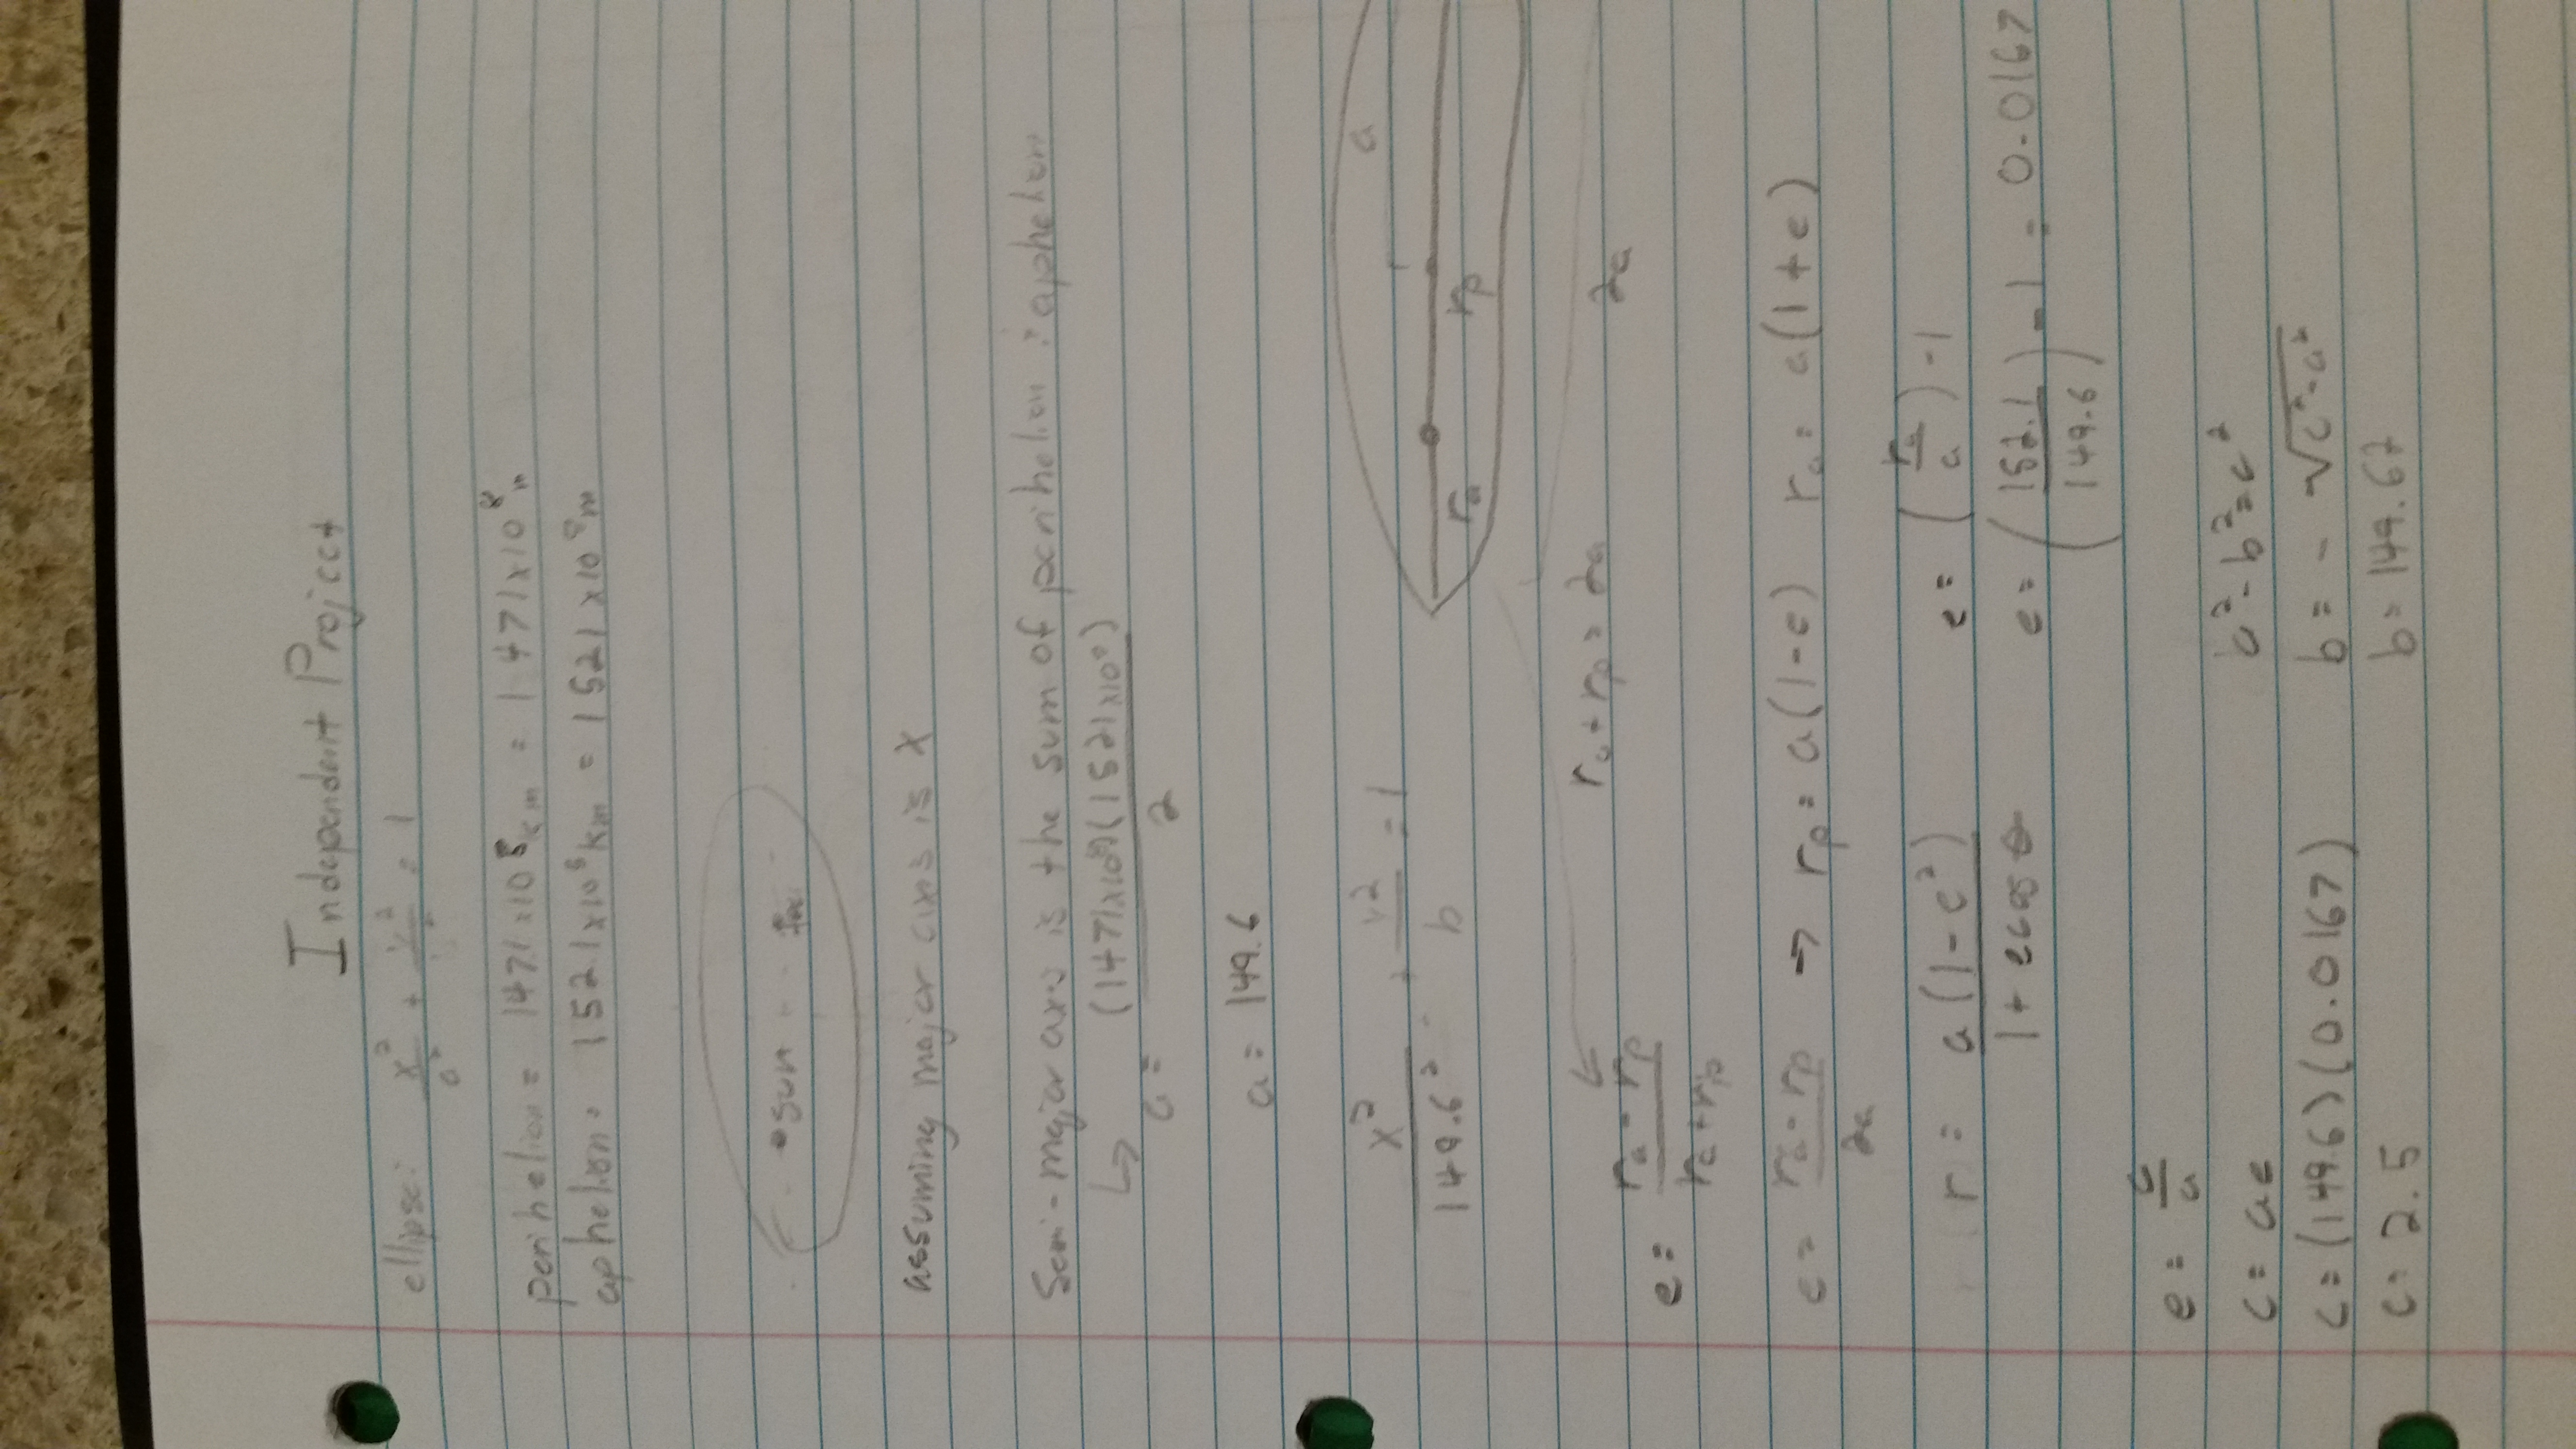 Independent Project
ellipse: x²/a² + y²/b² = 1
perihelion = 147.1 x10⁸ km = 1471x10⁸ m
aphelion = 152.1x10⁸ km = 1521 x10⁸ m
sun foci
assuming major axis is X
Semi-major axis is the sum of perihelion : aphelion
↳ a = (1471x10⁸)(1521x10⁸) / 2
a = 149.6
x²/149.6² + y²/b = 1
a
ra rp
ra + rp = 2a 2a
e = (ra - rp)/(ra + rp)
e = (ra - rp)/2a → rp = a(1-e) ra = a(1+e)
r = a(1-e²)/(1+ecosθ) e = (ra/a) -1
e = (152.1/149.6) -1 = 0.0167
e = c/a
c = ae a² - b² = c²
c = (149.6)(0.0167) b = - √c²-a²
c = 2.5 b = 149.67